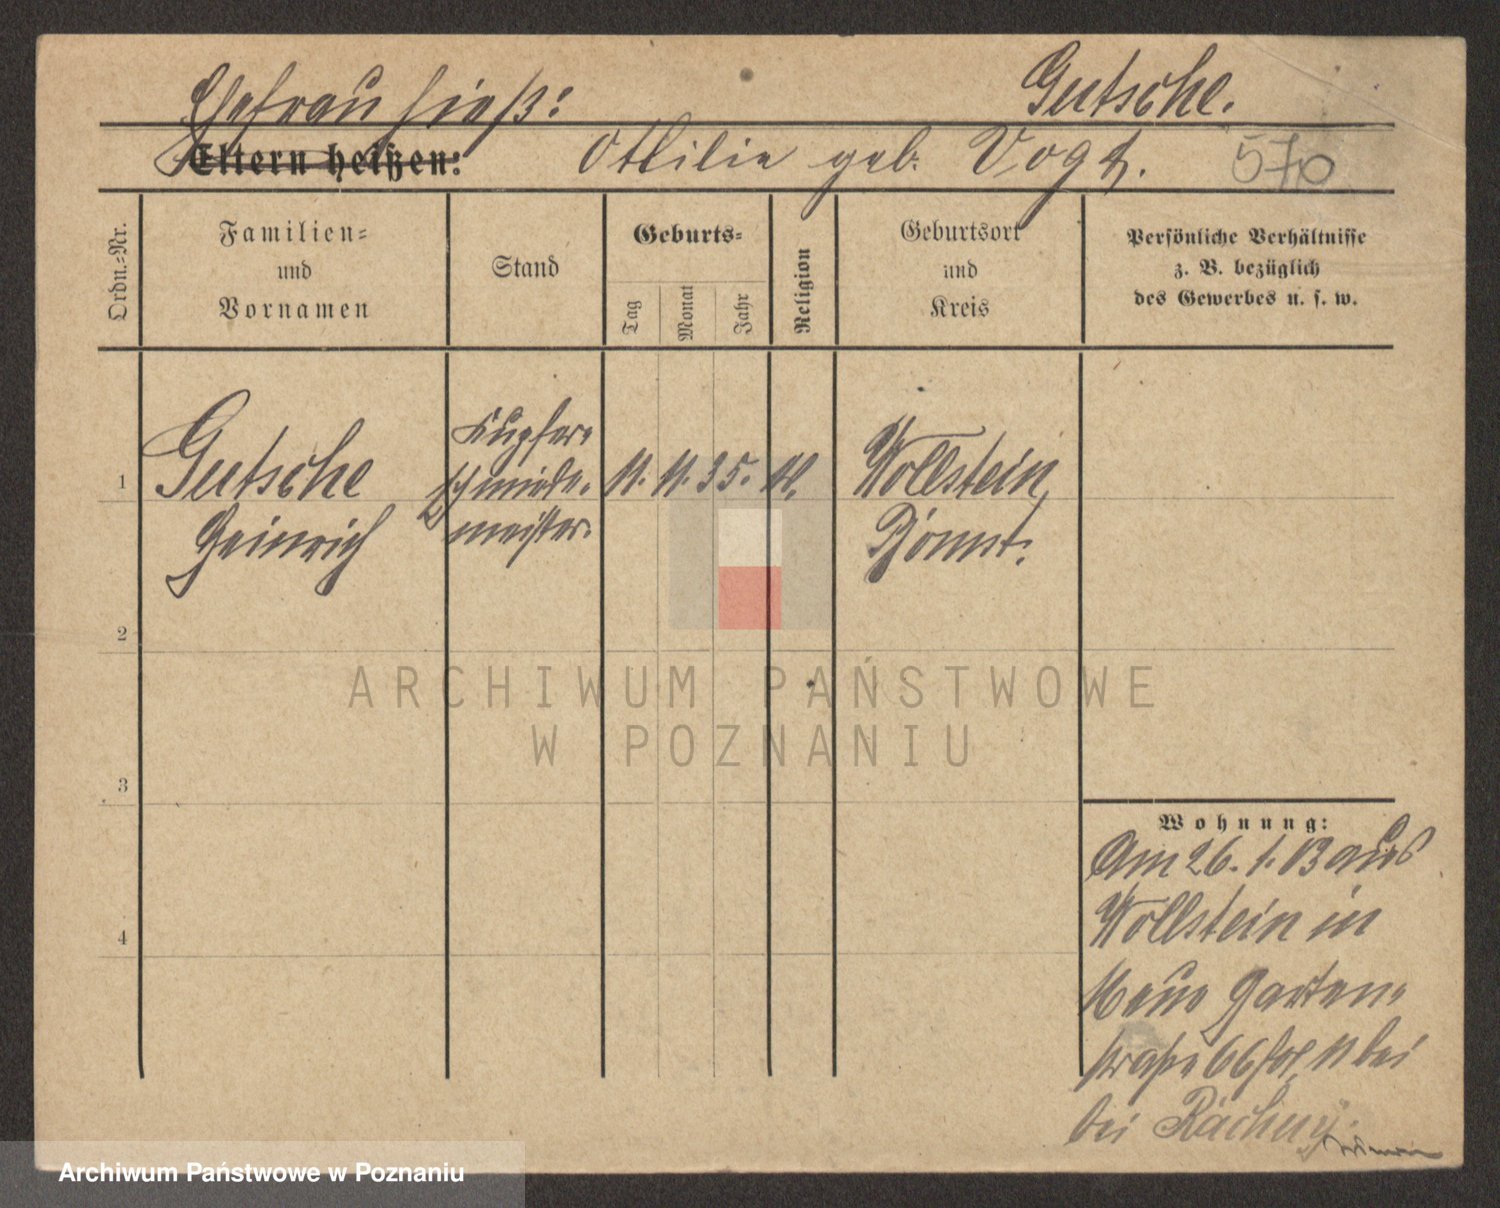 Ehefrau hieß: Gutsche.
Eltern heißen: Ottilie geb. Vogt. 570
Ordn.-Nr.
Familien-
und
Vornamen
Stand
Geburts-
Tag
Monat
Jahr
Religion
Geburtsort
und
Kreis
Persönliche Verhältnisse
z. B. bezüglich
des Gewerbes u. s. w.
1
Gutsche
Heinrich
Kupfer-
schmiede-
meister.
11. 11. 35.
Wollstein
Bomst.
2
3
4
Wohnung:
Am 26. 1. 03 aus
Wollstein in
Neue Garten-
straße 66 11 bei
bei
ARCHIWUM PAŃSTWOWE
W POZNANIU
Archiwum Państwowe w Poznaniu